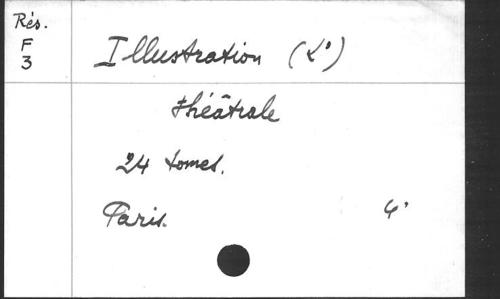 Rés.
F
3
Illustration (L')
théâtrale
24 tomes.
Paris. 4°